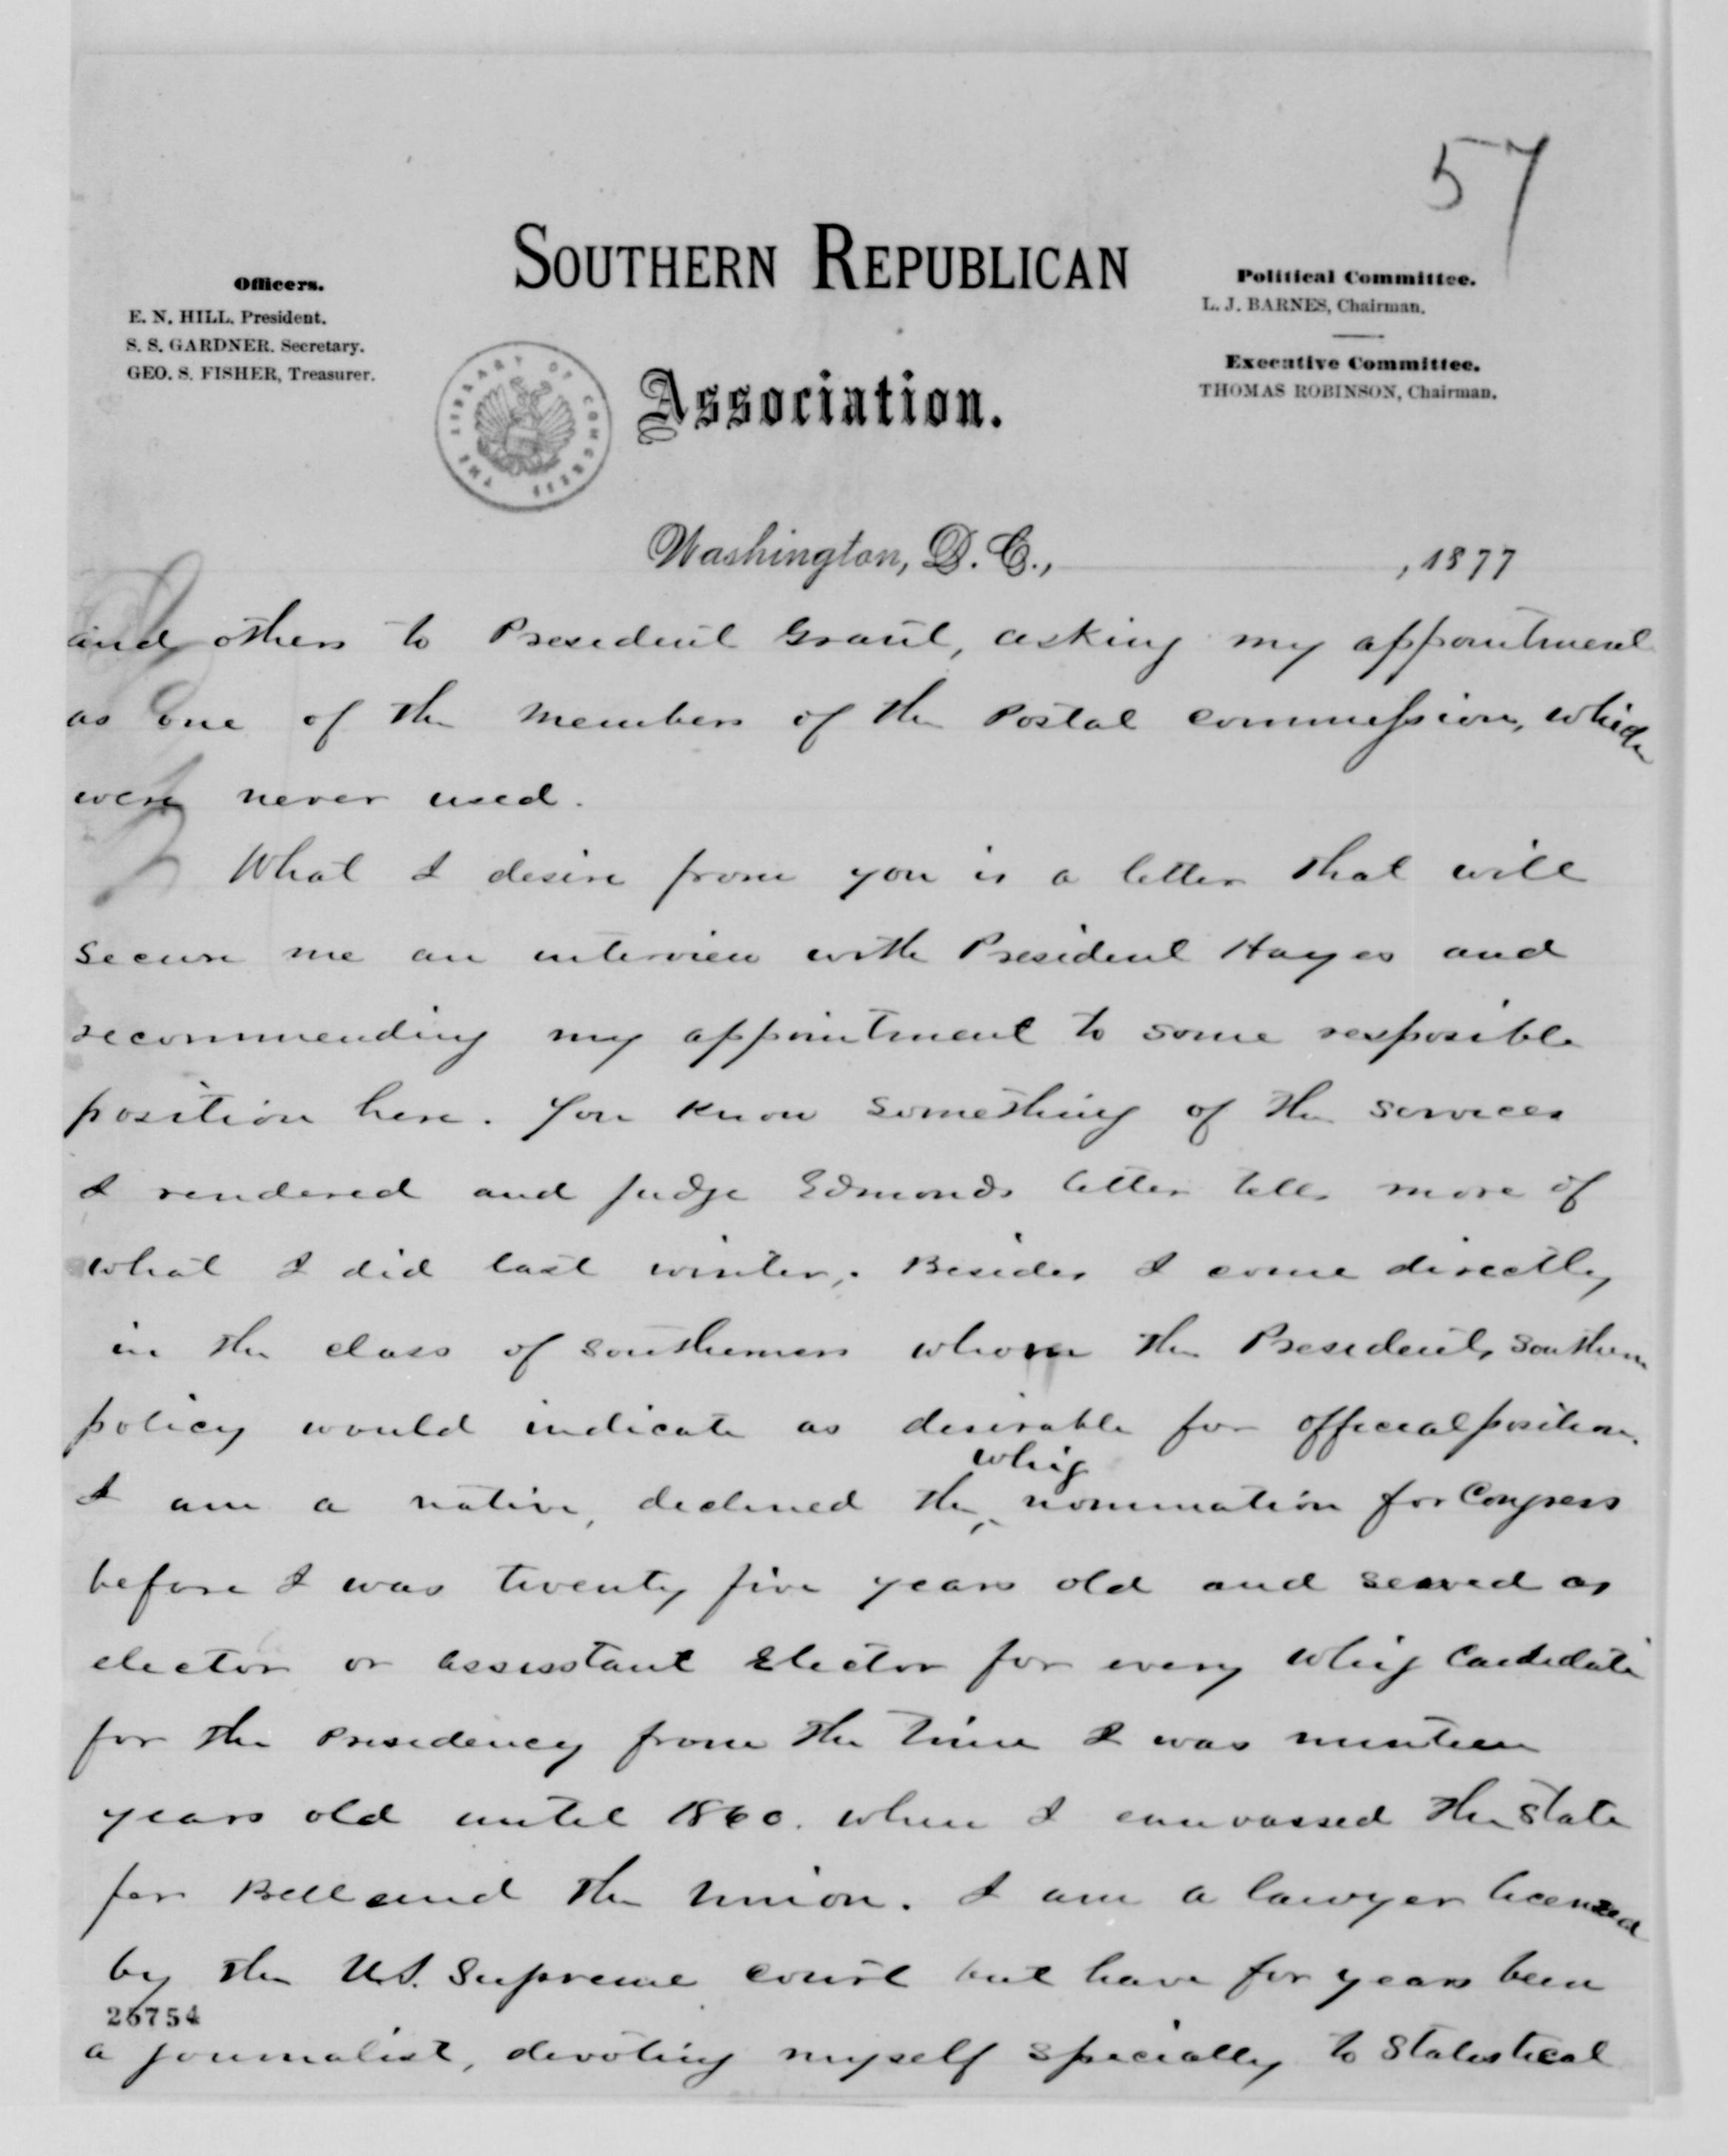 57
SOUTHERN REPUBLICAN
Association.
Officers.
E. N. HILL, President.
S. S. GARDNER. Secretary.
GEO. S. FISHER, Treasurer.
Political Committee.
L. J. BARNES, Chairman.
Executive Committee.
THOMAS ROBINSON, Chairman.
THE LIBRARY OF CONGRESS
Washington, D. C., , 1877
and others to President Grant, asking my appointment
as one of the members of the Postal commission, which
were never used.
What I desire from you is a letter that will
secure me an interview with President Hayes and
recommending my appointment to some resposible
position here. You know something of the services
I rendered and Judge Edmonds letter tells more of
what I did last winter. Besides I come directly
in the class of southerners whom the Presidents southern
policy would indicate as desirable for official position.
whig
I am a native, declined the ^ nomination for Congress
before I was twenty five years old and served as
elector or assisstant Elector for every whig Candidate
for the Presidency from the time I was nineteen
years old until 1860. when I canvassed the State
for Bell and the Union. I am a lawyer licensed
by the U.S. Supreme court but have for years been
25754
a journalist, devoting myself specially to Statistical